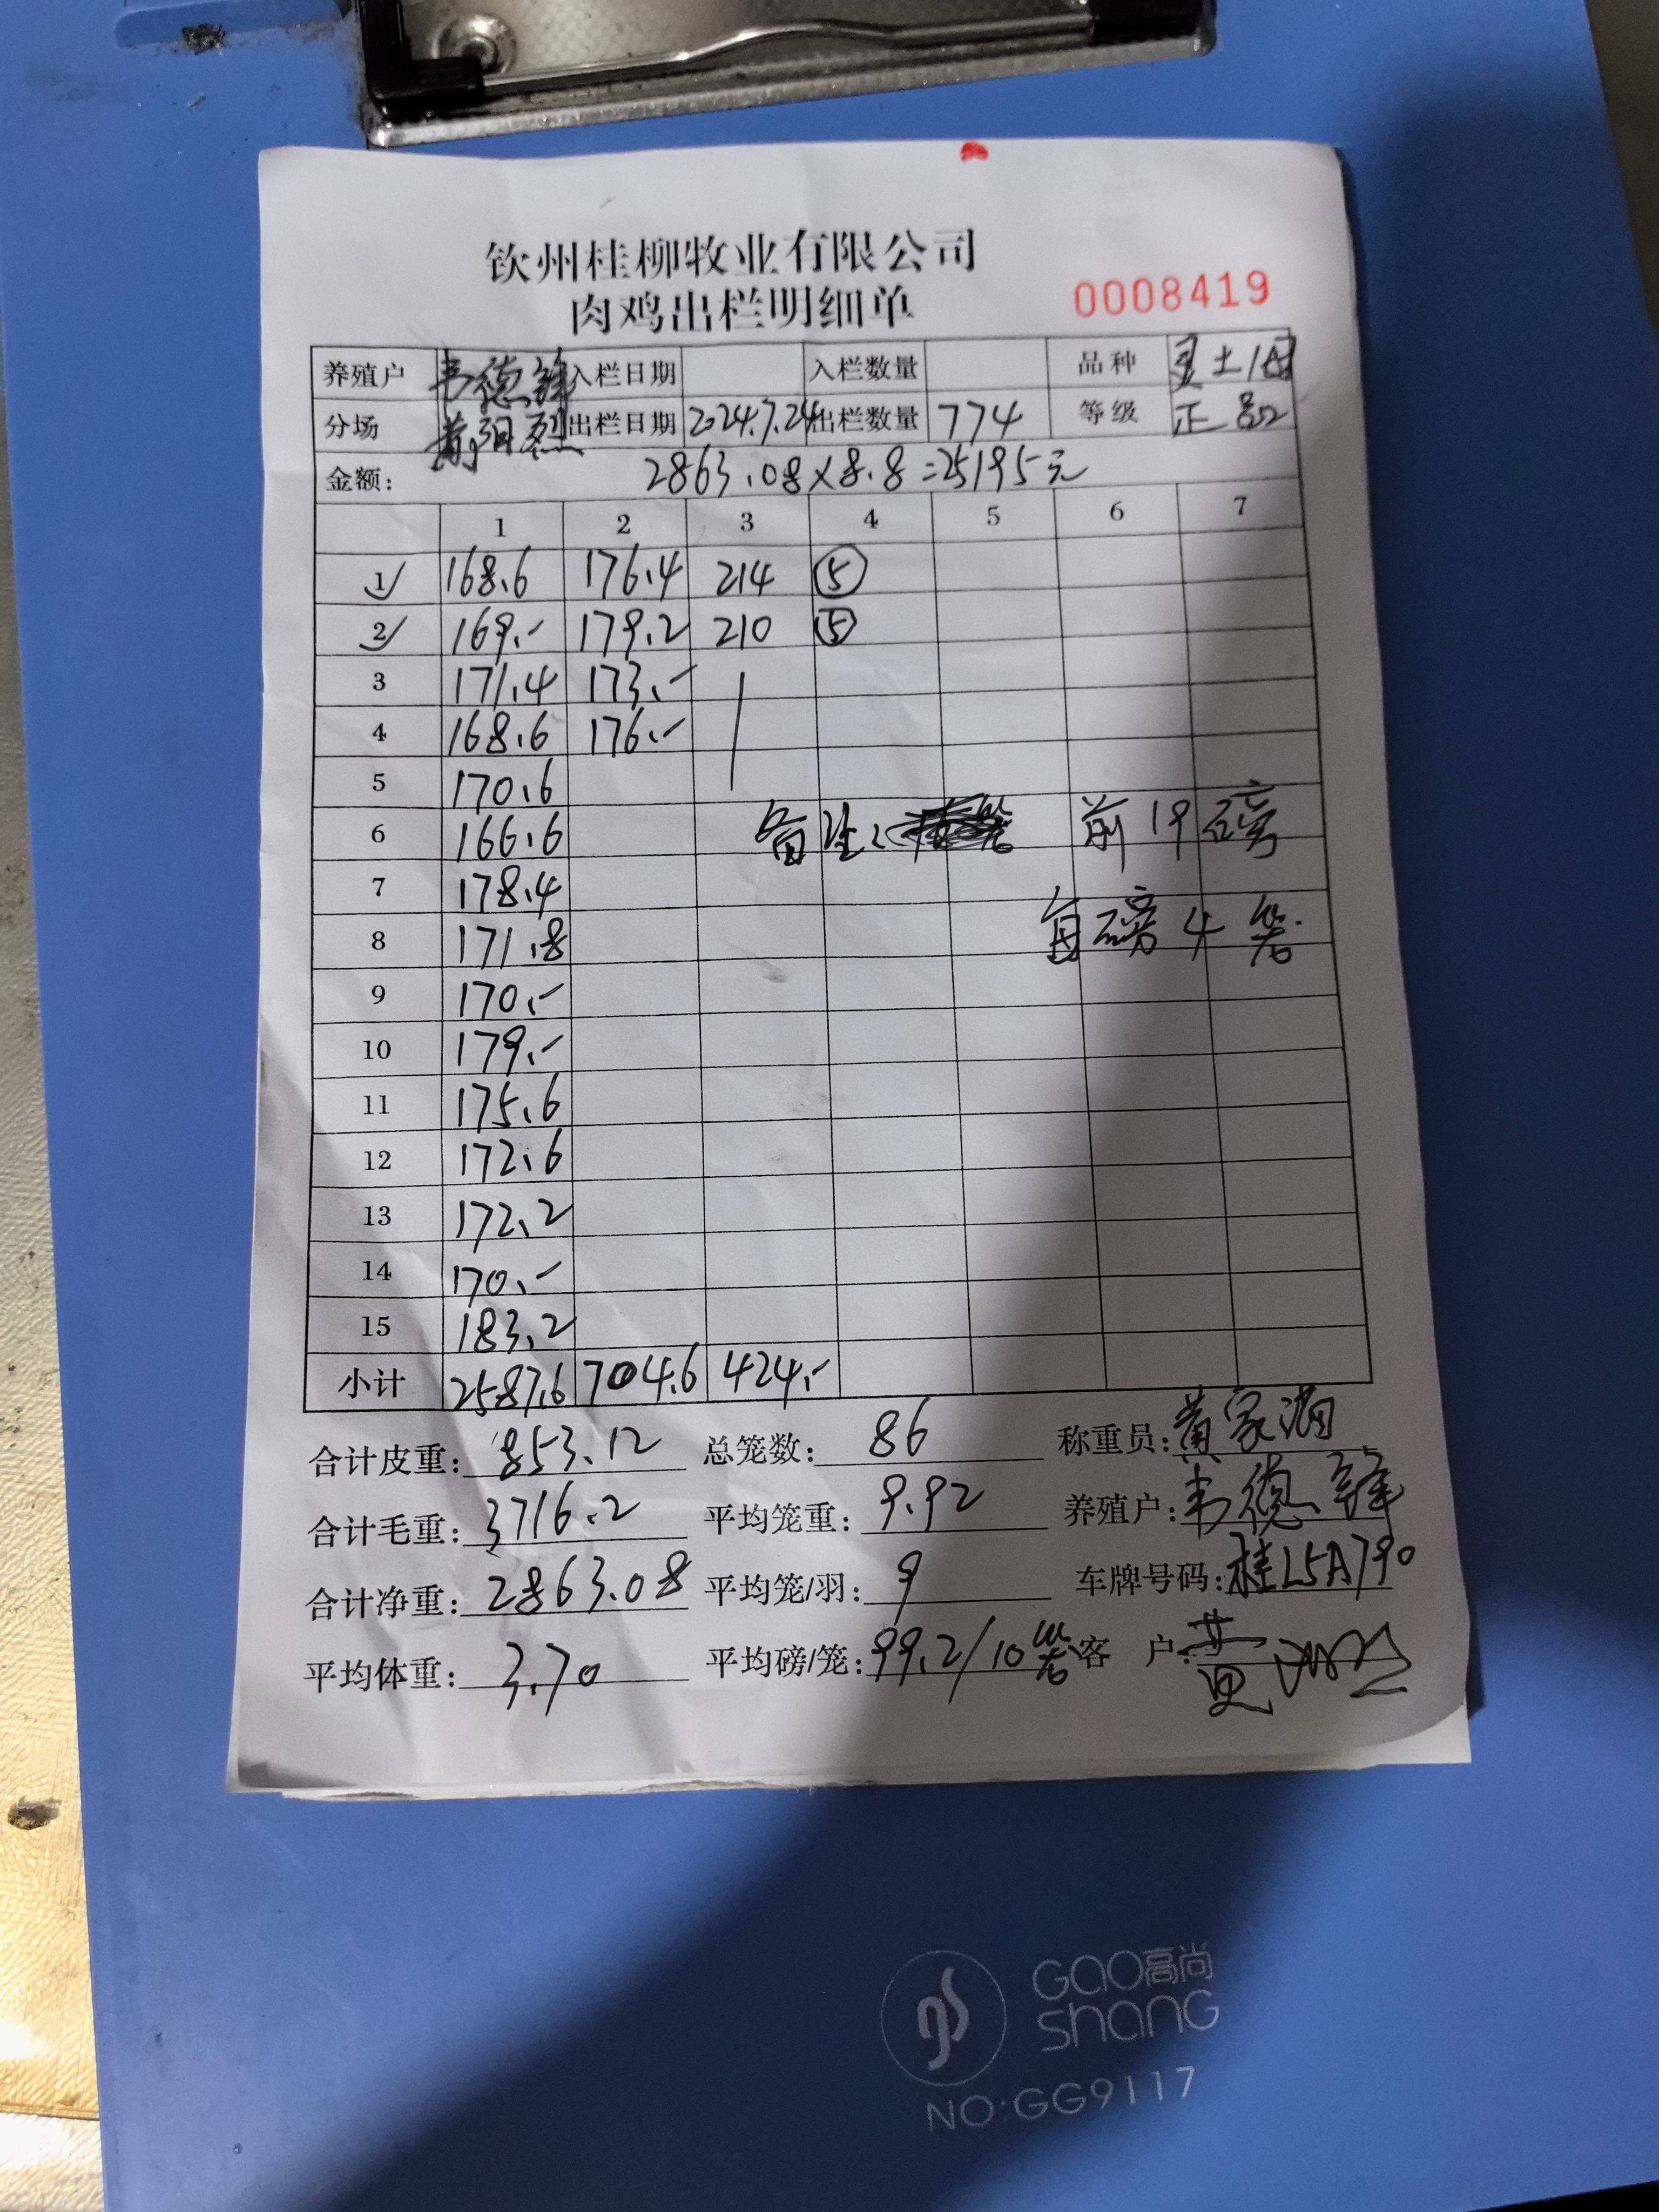 钦州桂柳牧业有限公司
肉鸡出栏明细单
0008419
养殖户 韦德锋 入栏日期 入栏数量 品种 土
分场 出栏日期 2024.7.24 出栏数量 774 等级 正品
金额: 2863.08×8.8=25195元
1 2 3 4 5 6 7
1 168.6 176.4 214 ⑤
2 169.- 179.2 210 ⑤
3 171.4 173.-
4 168.6 176.-
5 170.6
6 166.6 备注: 前19磅
7 178.4
8 171.8 每磅4笼
9 170.-
10 179.-
11 175.6
12 172.6
13 172.2
14 170.-
15 183.2
小计 2587.6 704.6 424.-
合计皮重: 853.12 总笼数: 86 称重员: 黄家满
合计毛重: 3716.2 平均笼重: 9.92 养殖户: 韦德锋
合计净重: 2863.08 平均笼/羽: 9 车牌号码: 桂L5A790
平均体重: 3.70 平均磅/笼: 99.2/10笼 客 户: 黄
GAO高尚
SHANG
NO:GG9117